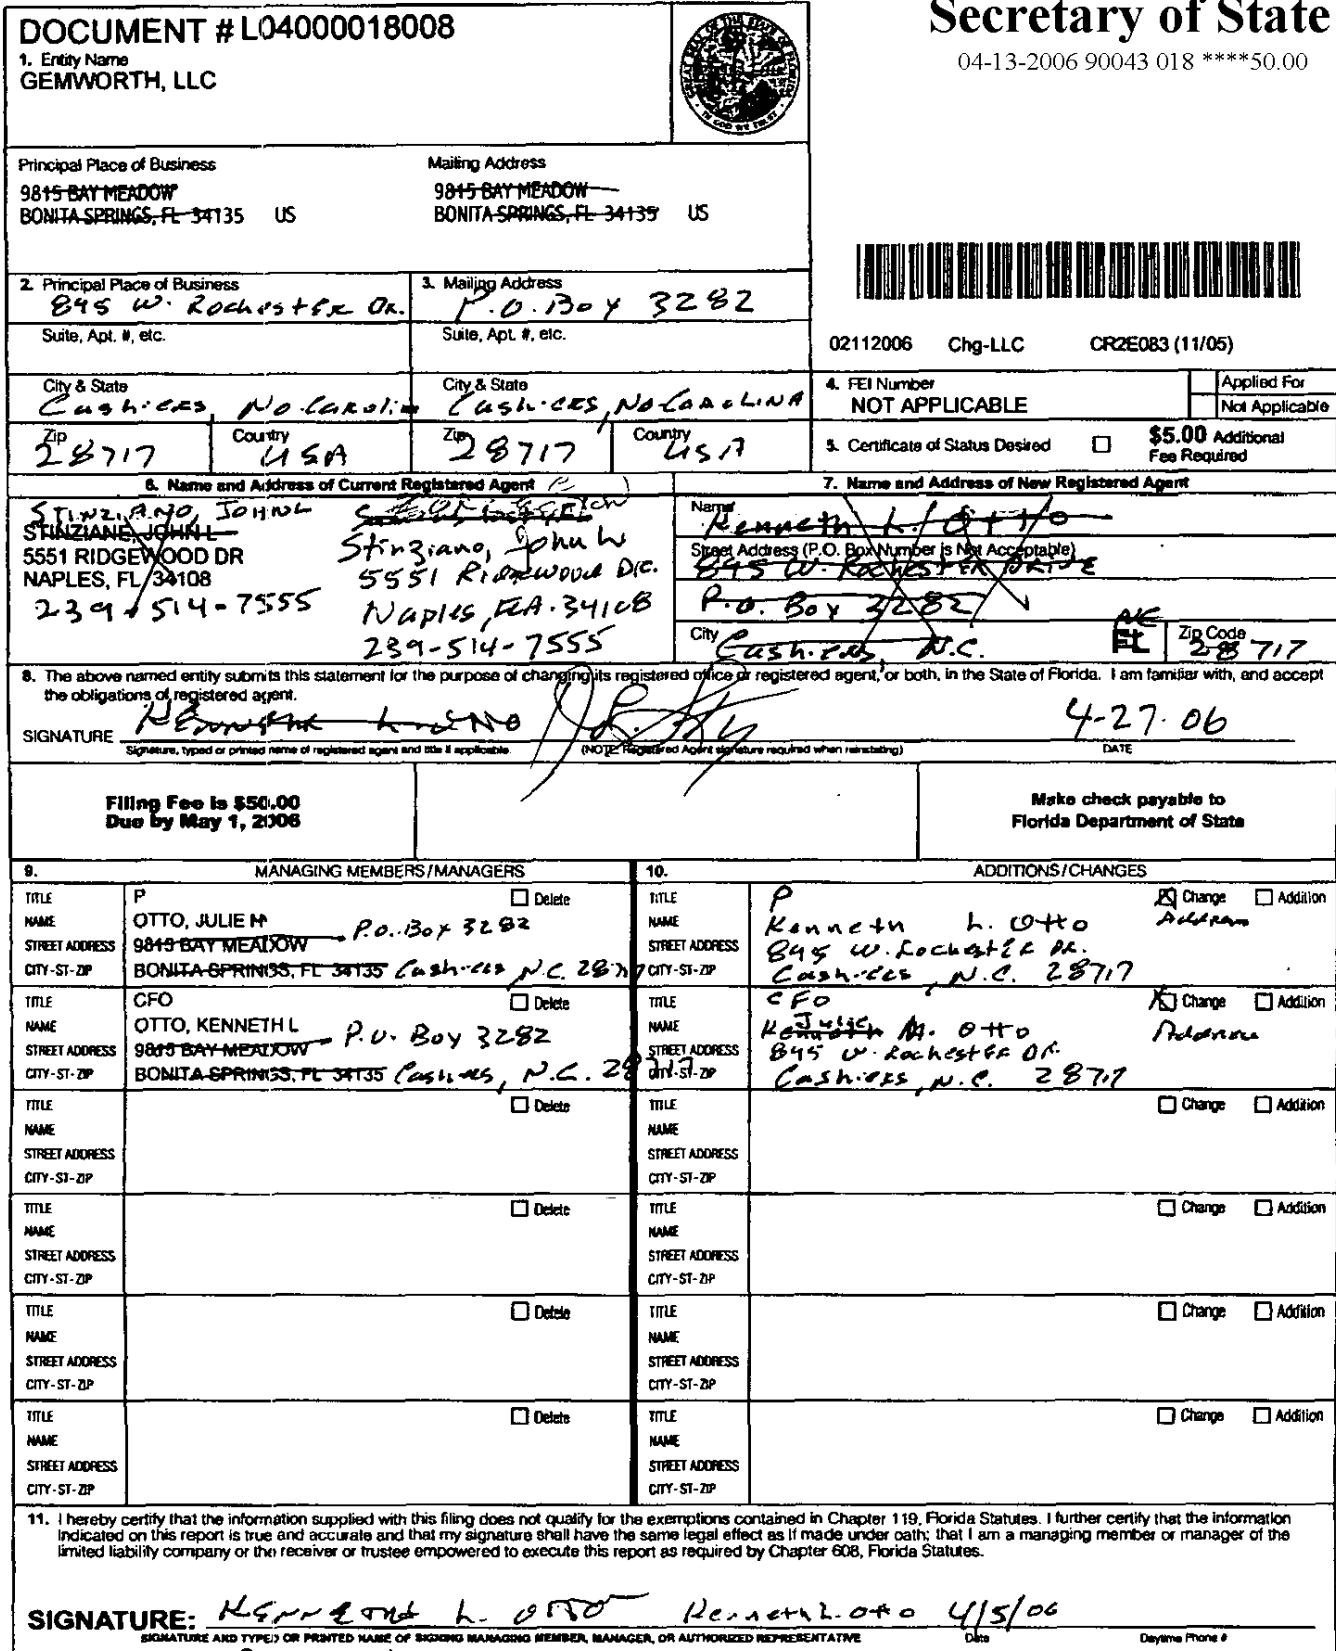 Secretary of State
04-13-2006 90043 018 ****50.00
DOCUMENT # L04000018008
1. Entity Name
GEMWORTH, LLC
Principal Place of Business
9815 BAY MEADOW
BONITA SPRINGS, FL 34135 US
Mailing Address
9815 BAY MEADOW
BONITA SPRINGS, FL 34135 US
2. Principal Place of Business
845 W. Rochester Dr.
Suite, Apt. #, etc.
City & State
Cashiers, No. Carolin
Zip
28717
Country
USA
3. Mailing Address
P.O. Box 3282
Suite, Apt. #, etc.
City & State
Cashiers, No Carolina
Zip
28717
Country
USA
02112006 Chg-LLC CR2E083 (11/05)
4. FEI Number
NOT APPLICABLE
Applied For
Not Applicable
5. Certificate of Status Desired
$5.00 Additional
Fee Required
6. Name and Address of Current Registered Agent
Stinziano, John L
STINZIANE, JOHN L
5551 RIDGEWOOD DR
NAPLES, FL 34108
239-514-7555
Stinziano, John W
5551 Ridgewood Dr.
Naples, FLA. 34108
239-514-7555
7. Name and Address of New Registered Agent
Name
Kenneth L. Otto
Street Address (P.O. Box Number is Not Acceptable)
845 W. Rochester Drive
P.O. Box 3282
City
Cashiers, N.C.
NC
FL
Zip Code
28717
8. The above named entity submits this statement for the purpose of changing its registered office or registered agent, or both, in the State of Florida. I am familiar with, and accept
the obligations of registered agent.
SIGNATURE
4-27-06
Signature, typed or printed name of registered agent and title if applicable.
(NOTE: Registered Agent signature required when reinstating)
DATE
Filing Fee is $50.00
Due by May 1, 2006
Make check payable to
Florida Department of State
9. MANAGING MEMBERS/MANAGERS
TITLE P Delete
NAME OTTO, JULIE M
STREET ADDRESS 9815 BAY MEADOW P.O. Box 3282
CITY-ST-ZIP BONITA SPRINGS, FL 34135 Cashiers, N.C. 28717
TITLE CFO Delete
NAME OTTO, KENNETH L
STREET ADDRESS 9815 BAY MEADOW P.O. Box 3282
CITY-ST-ZIP BONITA SPRINGS, FL 34135 Cashiers, N.C. 28717
TITLE Delete
NAME
STREET ADDRESS
CITY-ST-ZIP
TITLE Delete
NAME
STREET ADDRESS
CITY-ST-ZIP
TITLE Delete
NAME
STREET ADDRESS
CITY-ST-ZIP
TITLE Delete
NAME
STREET ADDRESS
CITY-ST-ZIP
10. ADDITIONS/CHANGES
TITLE P Change Addition
NAME Kenneth L. Otto Address
STREET ADDRESS 845 W. Rochester Dr.
CITY-ST-ZIP Cashiers, N.C. 28717
TITLE CFO Change Addition
NAME Kenneth Julie M. Otto Address
STREET ADDRESS 845 W. Rochester Dr.
CITY-ST-ZIP Cashiers, N.C. 28717
TITLE Change Addition
NAME
STREET ADDRESS
CITY-ST-ZIP
TITLE Change Addition
NAME
STREET ADDRESS
CITY-ST-ZIP
TITLE Change Addition
NAME
STREET ADDRESS
CITY-ST-ZIP
TITLE Change Addition
NAME
STREET ADDRESS
CITY-ST-ZIP
11. I hereby certify that the information supplied with this filing does not qualify for the exemptions contained in Chapter 119, Florida Statutes. I further certify that the information
indicated on this report is true and accurate and that my signature shall have the same legal effect as if made under oath; that I am a managing member or manager of the
limited liability company or the receiver or trustee empowered to execute this report as required by Chapter 608, Florida Statutes.
SIGNATURE: Kenneth L. Otto Kenneth L. Otto 4/5/06
SIGNATURE AND TYPED OR PRINTED NAME OF SIGNING MANAGING MEMBER, MANAGER, OR AUTHORIZED REPRESENTATIVE Date Daytime Phone #